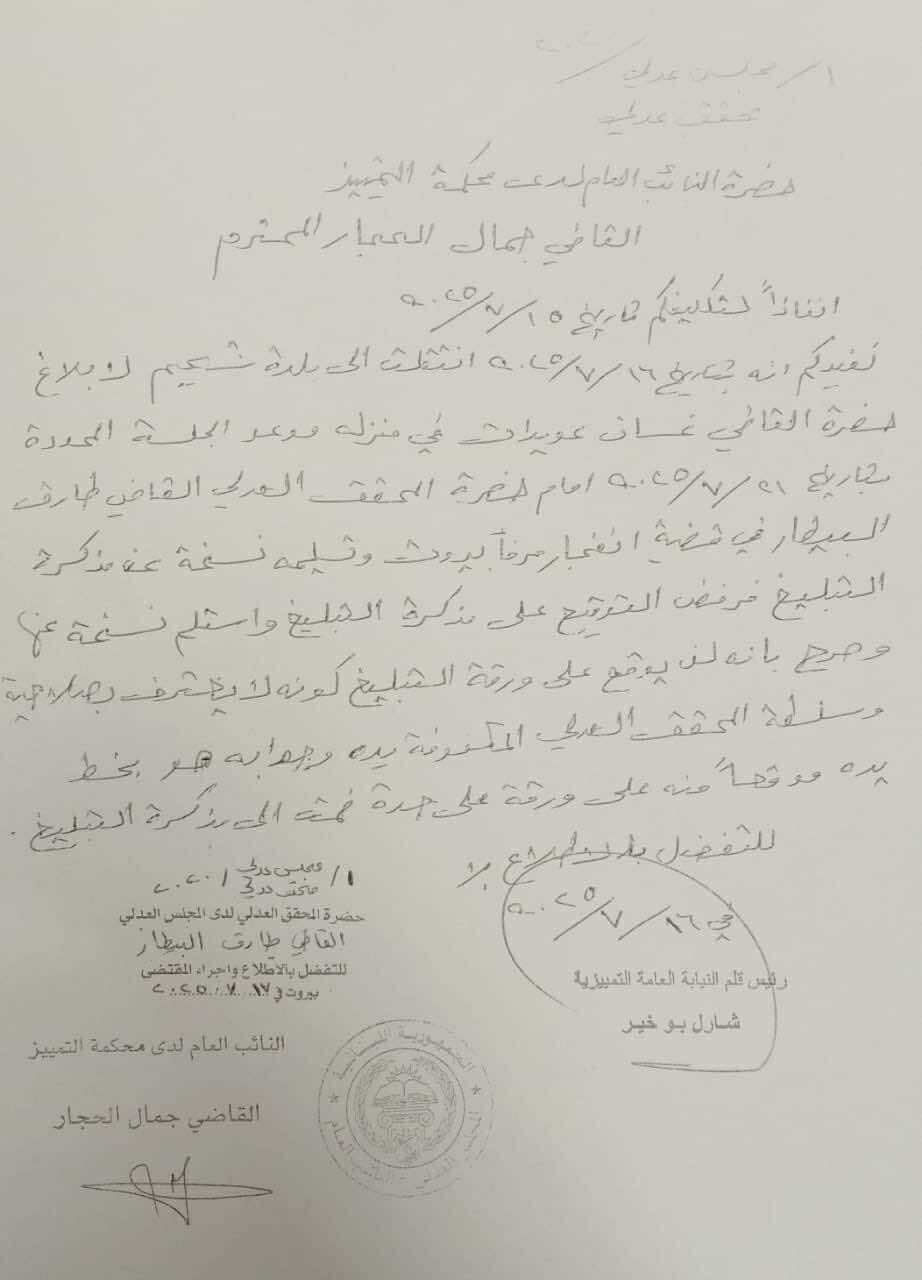 ١/ مجلس عدلي / ٢٠٢٠
محقق عدلي
حضرة النائب العام لدى محكمة التمييز
القاضي جمال الحجار المحترم
انفاذاً لتكليفكم تاريخ ٢٠٢٥/٧/١٥
نفيدكم انه بتاريخ ٢٠٢٥/٧/١٦ انتقلت الى بلدة شحيم لابلاغ
حضرة القاضي غسان عويدات في منزله موعد الجلسة المحددة
بتاريخ ٢٠٢٥/٧/٢١ امام حضرة المحقق العدلي القاضي طارق
البيطار في قضية انفجار مرفأ بيروت وتسليمه نسخة عن مذكرة
التبليغ فرفض التوقيع على مذكرة التبليغ واستلم نسخة عنها
وصرح بانه لن يوقع على ورقة التبليغ كونه لا يعترف بصلاحية
وسلطة المحقق العدلي المكفوفة يده وجوابه هو بخط
يده موقعاً منه على ورقة على حدة ضمت الى مذكرة التبليغ .
للتفضل بالاطلاع
في ٢٠٢٥/٧/١٦
رئيس قلم النيابة العامة التمييزية
شارل بو خير
١/ مجلس عدلي / ٢٠٢٠
محقق عدلي
حضرة المحقق العدلي لدى المجلس العدلي
القاضي طارق البيطار
للتفضل بالاطلاع واجراء المقتضى
بيروت في ١٧ . ٧ . ٢٠٢٥
النائب العام لدى محكمة التمييز
القاضي جمال الحجار
الجمهورية اللبنانية
المجلس العدلي - النائب العام